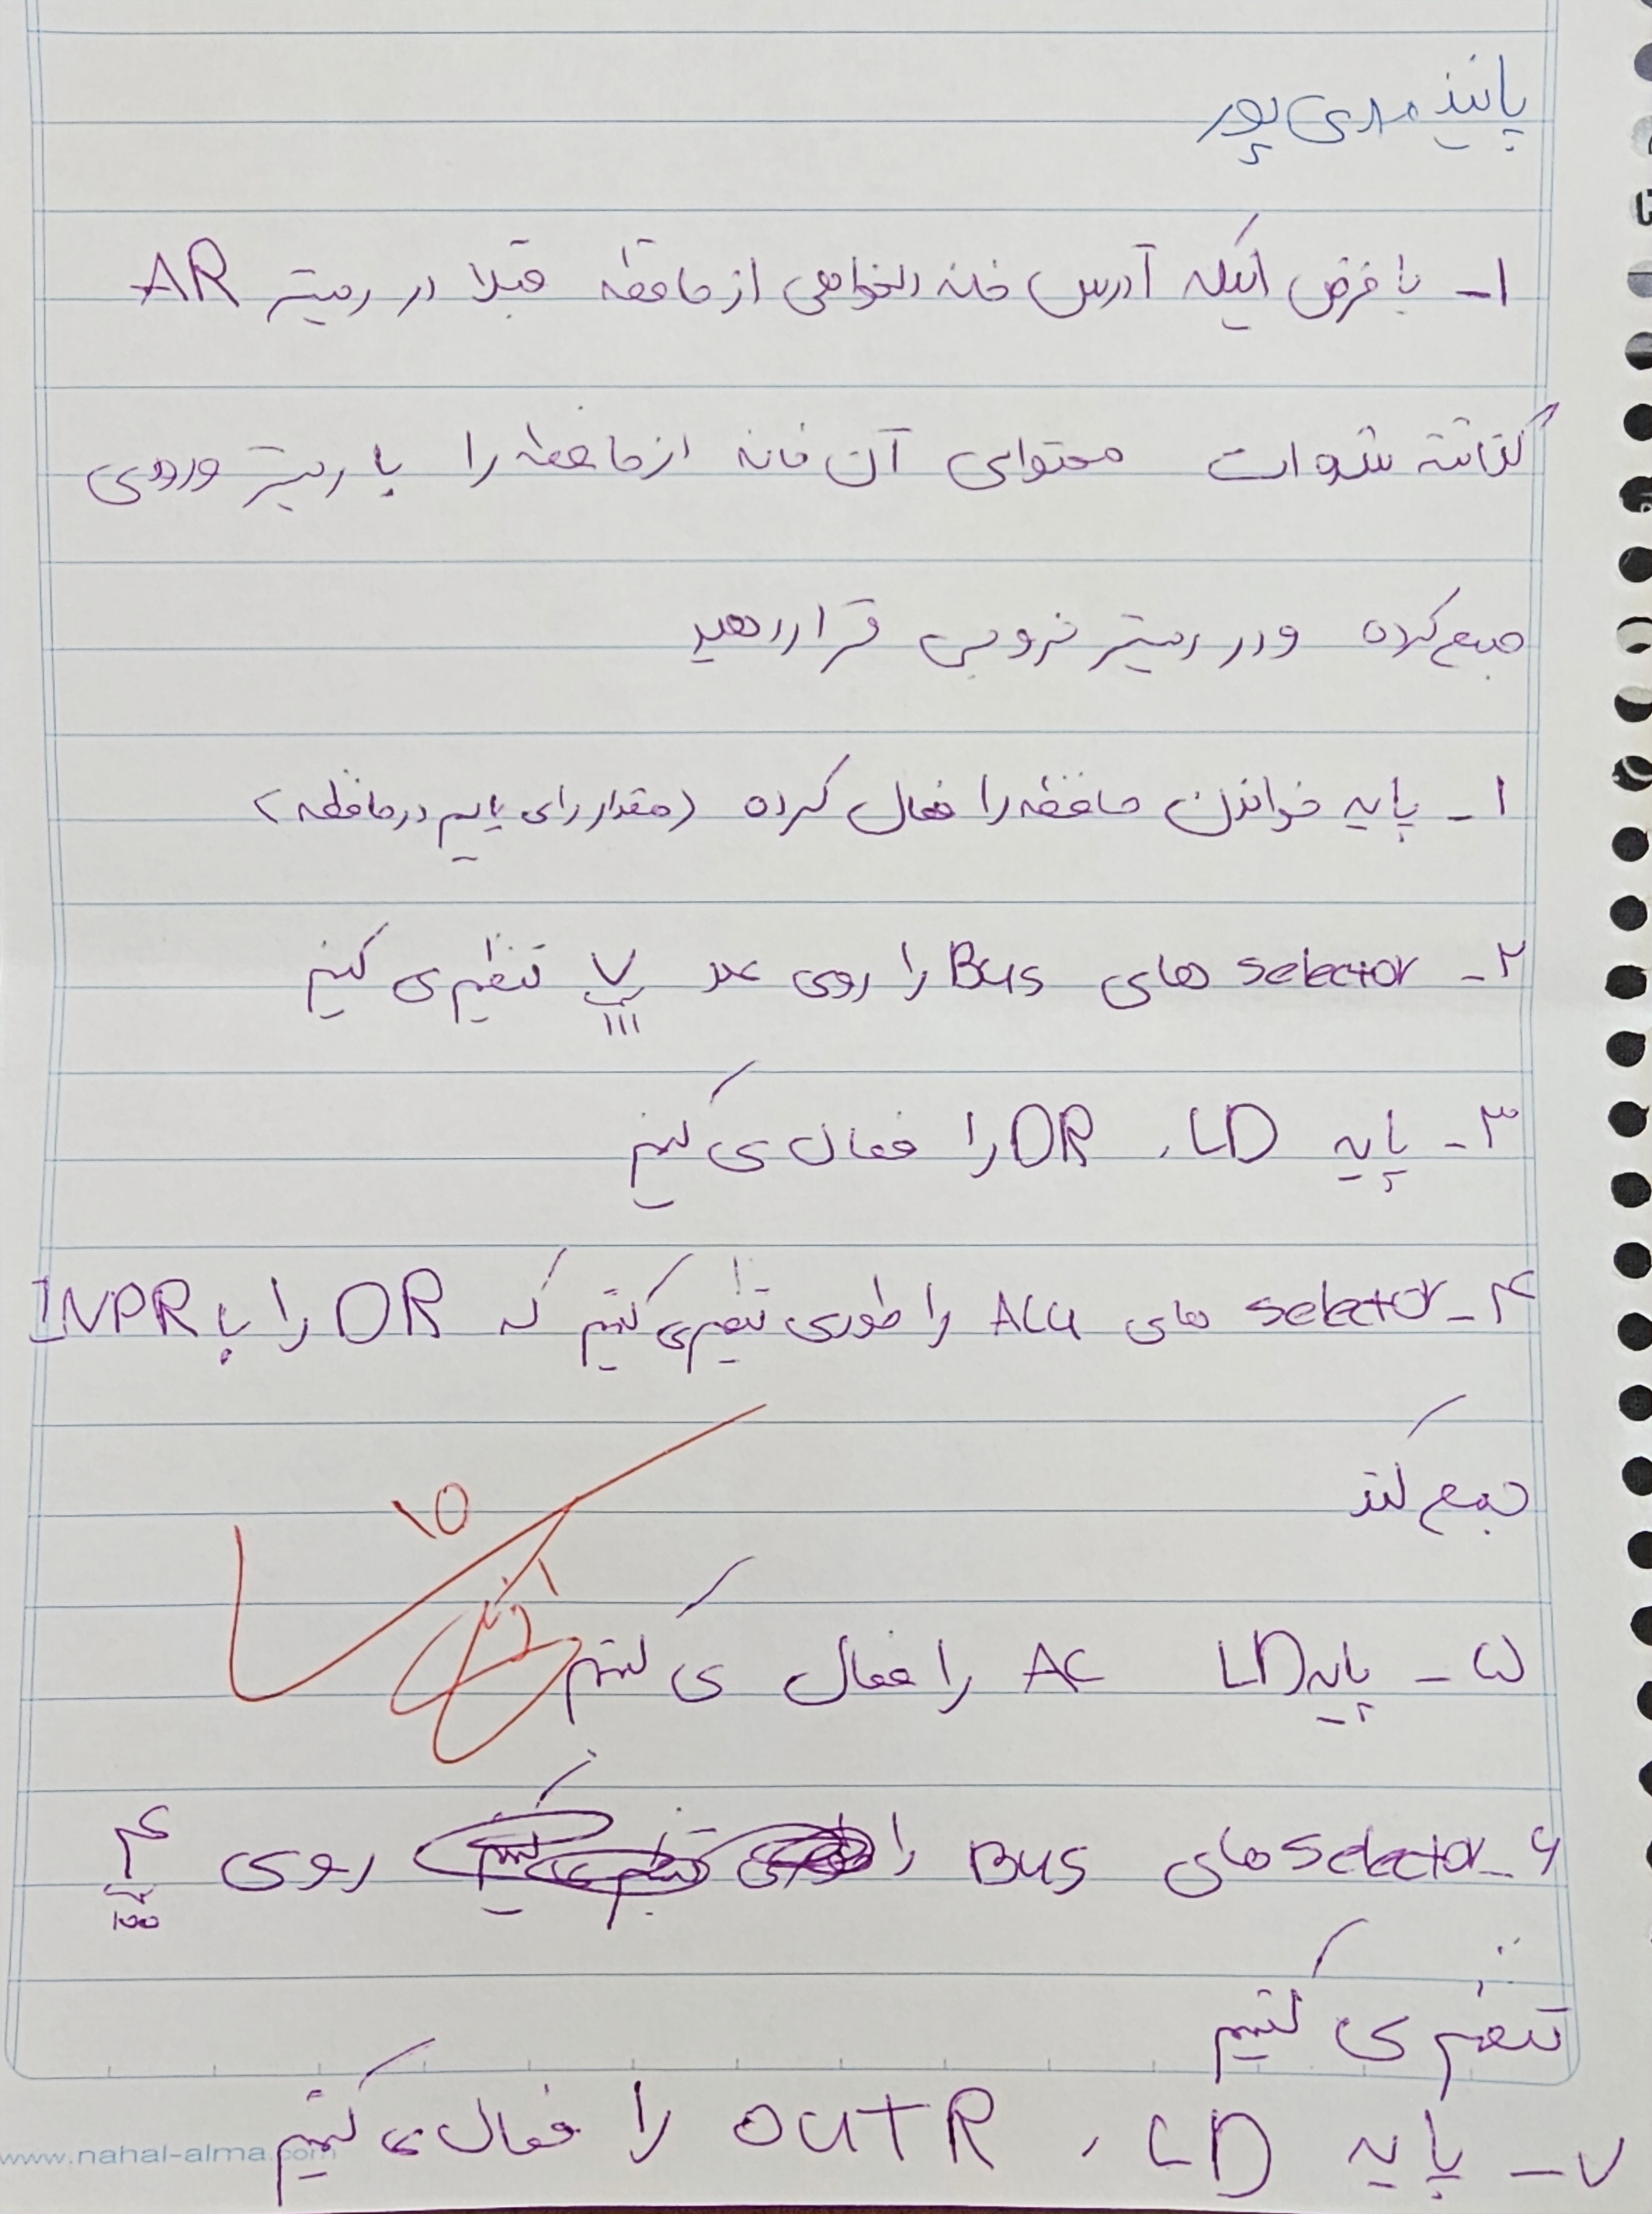 پانیذ مهدی پور
۱- با فرض اینکه آدرس خانه دلخواهی از حافظه قبلا در رجیستر AR
گذاشته شده است محتوای آن خانه از حافظه را با رجیستر ورودی
جمع کرده و در رجیستر خروجی قرار دهید
۱- پایه خواندن حافظه را فعال کرده (مقدار رای یابیم در حافظه)
۲- selector های Bus را روی عدد ۷ تنظیم می کنیم
۱۱۱
۳- پایه LD، DR را فعال می کنیم
۴- selector های ALU را طوری تنظیم می کنیم که DR را با INPR
جمع کند
۱۵
۵- پایه LD AC را فعال می کنیم
۶- selector های Bus را روی ۴
۱۰۰
تنظیم می کنیم
۷- پایه LD، OUTR را فعال می کنیم
www.nahal-alma.com